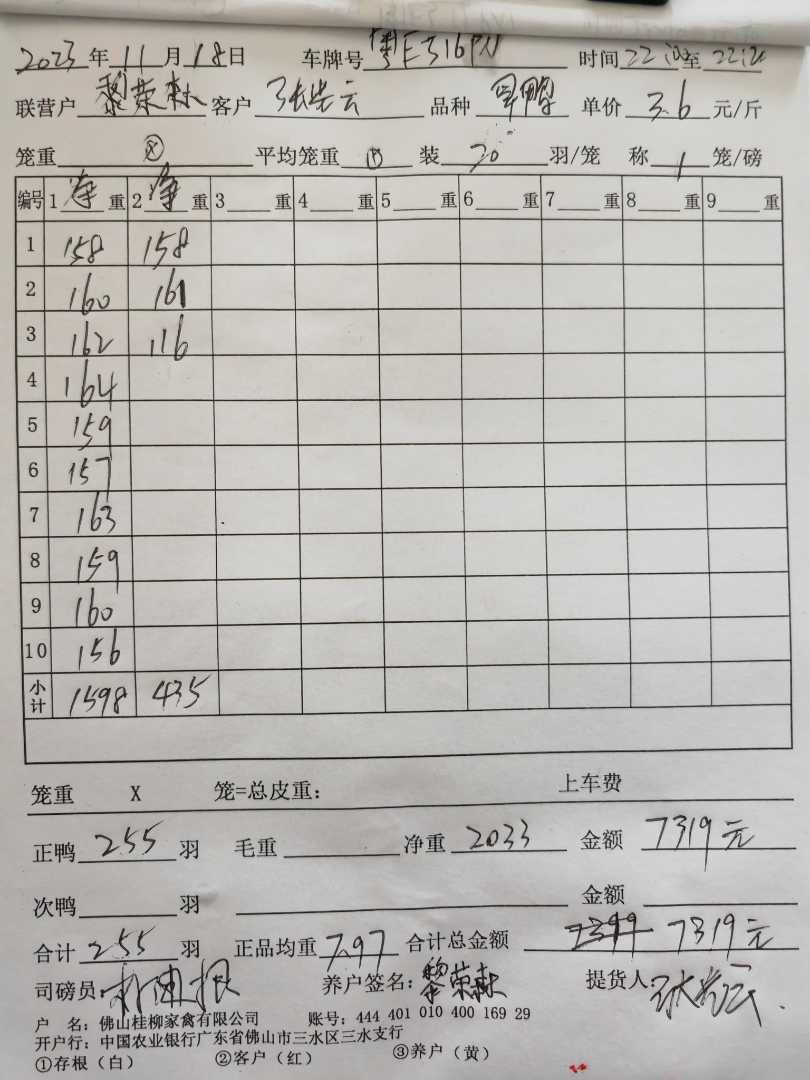 2023年11月18日 车牌号粤E316PN 时间22:00至22:20
联营户黎荣森客户张出云 品种旱鸭 单价3.6元/斤
笼重⊗ 平均笼重 装20羽/笼 称1笼/磅
编号 1净重 2净重 3重 4重 5重 6重 7重 8重 9重
1 158 158
2 160 161
3 162 116
4 164
5 159
6 157
7 163
8 159
9 160
10 156
小计 1598 435
笼重 X 笼=总皮重: 上车费
正鸭255羽 毛重 净重2033 金额7319元
次鸭 羽 金额
合计255羽 正品均重7.97 合计总金额 7399 7319元
司磅员: 养户签名:黎荣森 提货人:
户 名:佛山桂柳家禽有限公司 账号:444 401 010 400 169 29
开户行:中国农业银行广东省佛山市三水区三水支行
①存根(白) ②客户(红) ③养户(黄)